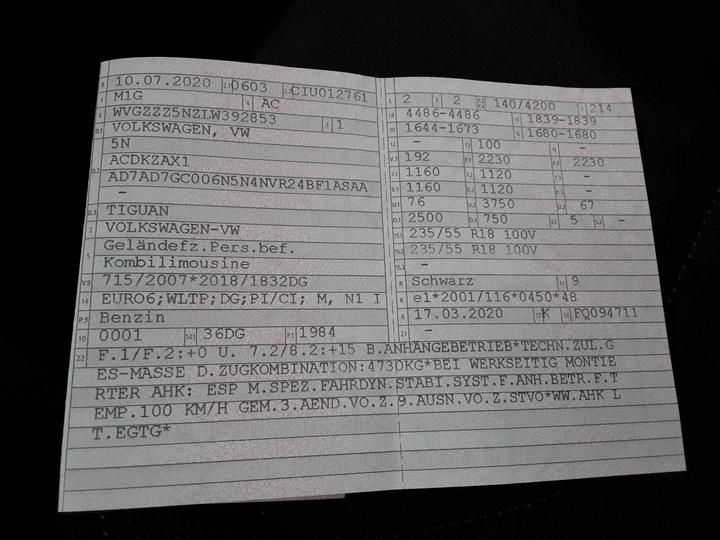 B 10.07.2020 2.1 0603 2.2 CIU012761
J M1G 4 AC
E WVGZZZ5NZLW392853 3 1
D.1 VOLKSWAGEN, VW
5N
D.2 ACDKZAX1
AD7AD7GC006N5N4NVR24BF1ASAA
-
D.3 TIGUAN
2 VOLKSWAGEN-VW
5 Geländefz.Pers.bef.
Kombilimousine
V.9 715/2007*2018/1832DG
14 EURO6;WLTP;DG;PI/CI; M, N1 I
P.3 Benzin
10 0001 14.1 36DG P.1 1984
L 2 9 2 140/4200 T 214
18 4486-4486 19 1839-1839
20 1644-1673 G 1680-1680
12 - 13 100 Q -
V.7 192 F.1 2230 F.2 2230
7.1 1160 7.2 1120 7.3 -
8.1 1160 8.2 1120 8.3 -
U.1 76 U.2 3750 U.3 67
O.1 2500 O.2 750 S.1 5 S.2 -
15.1 235/55 R18 100V
15.2 235/55 R18 100V
15.3 -
R Schwarz 11 9
K e1*2001/116*0450*48
6 17.03.2020 17 K 16 FQ094711
21 -
22 F.1/F.2:+0 U. 7.2/8.2:+15 B.ANHÄNGEBETRIEB*TECHN.ZUL.G
ES-MASSE D.ZUGKOMBINATION:4730KG*BEI WERKSEITIG MONTIE
RTER AHK: ESP M.SPEZ.FAHRDYN.STABI.SYST.F.ANH.BETR.F.T
EMP.100 KM/H GEM.3.AEND.VO.Z.9.AUSN.VO.Z.STVO*WW.AHK L
T.EGTG*